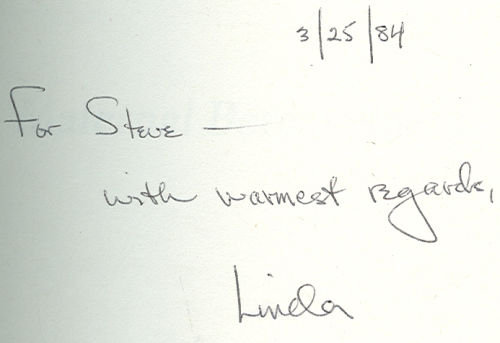 3/25/84
For Steve —
with warmest regards,
Linda